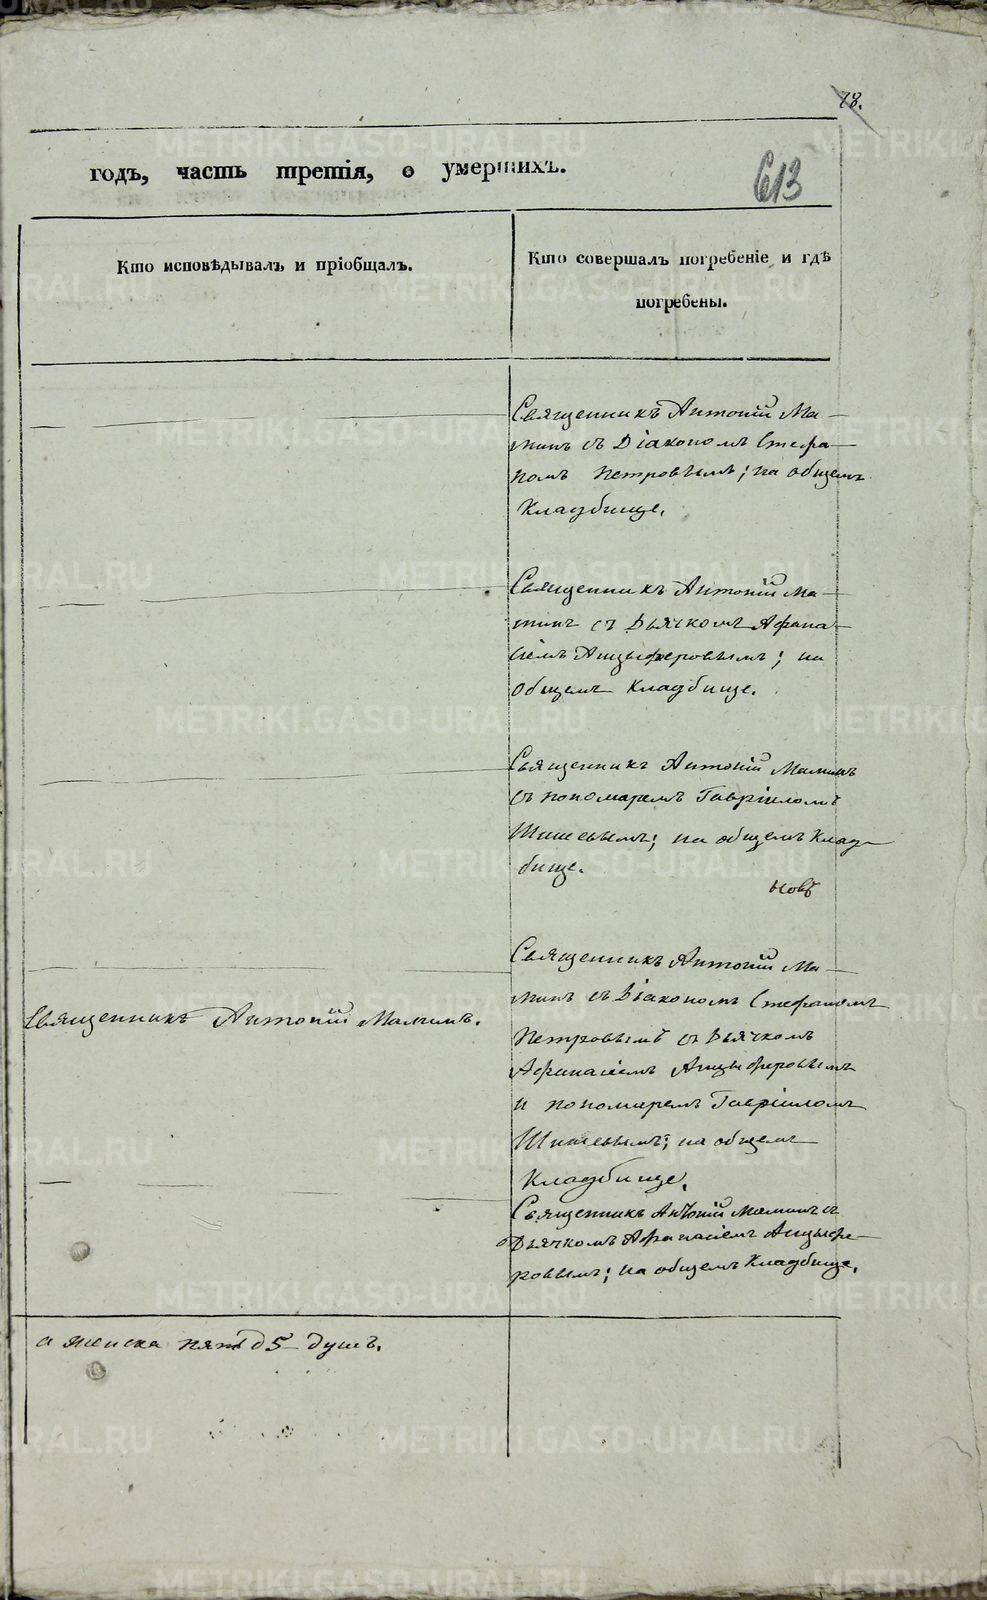 78.
годъ, часть третія, о умершихъ.
613
Кто исповѣдывалъ и пріобщалъ.
Кто совершалъ погребеніе и гдѣ
погребены.
Священникъ Антоній Ма-
минъ съ Діакономъ Стефа-
номъ Петровымъ; на общемъ
Кладбище.
Священникъ Антоній Ма-
минъ съ Дьячкомъ Афана-
сіемъ Анцыферовымъ; на
общемъ Кладбище.
Священникъ Антоній Маминъ
съ пономаремъ Гавріиломъ
Шишевымъ; на общемъ Клад-
бище.
новъ
Священникъ Антоній Ма-
минъ съ Діакономъ Стефаномъ
Петровымъ съ Дьячкомъ
Афанасіемъ Анцыферовымъ
и пономаремъ Гавріиломъ
Шишевымъ; на общемъ
Кладбище.
Священникъ Антоній Маминъ.
Священникъ Антоній Маминъ съ
Дьячкомъ Афанасіемъ Анцыфе-
ровымъ; на общемъ Кладбище.
а женска пять 5 душъ.
METRIKI.GASO-URAL.RU